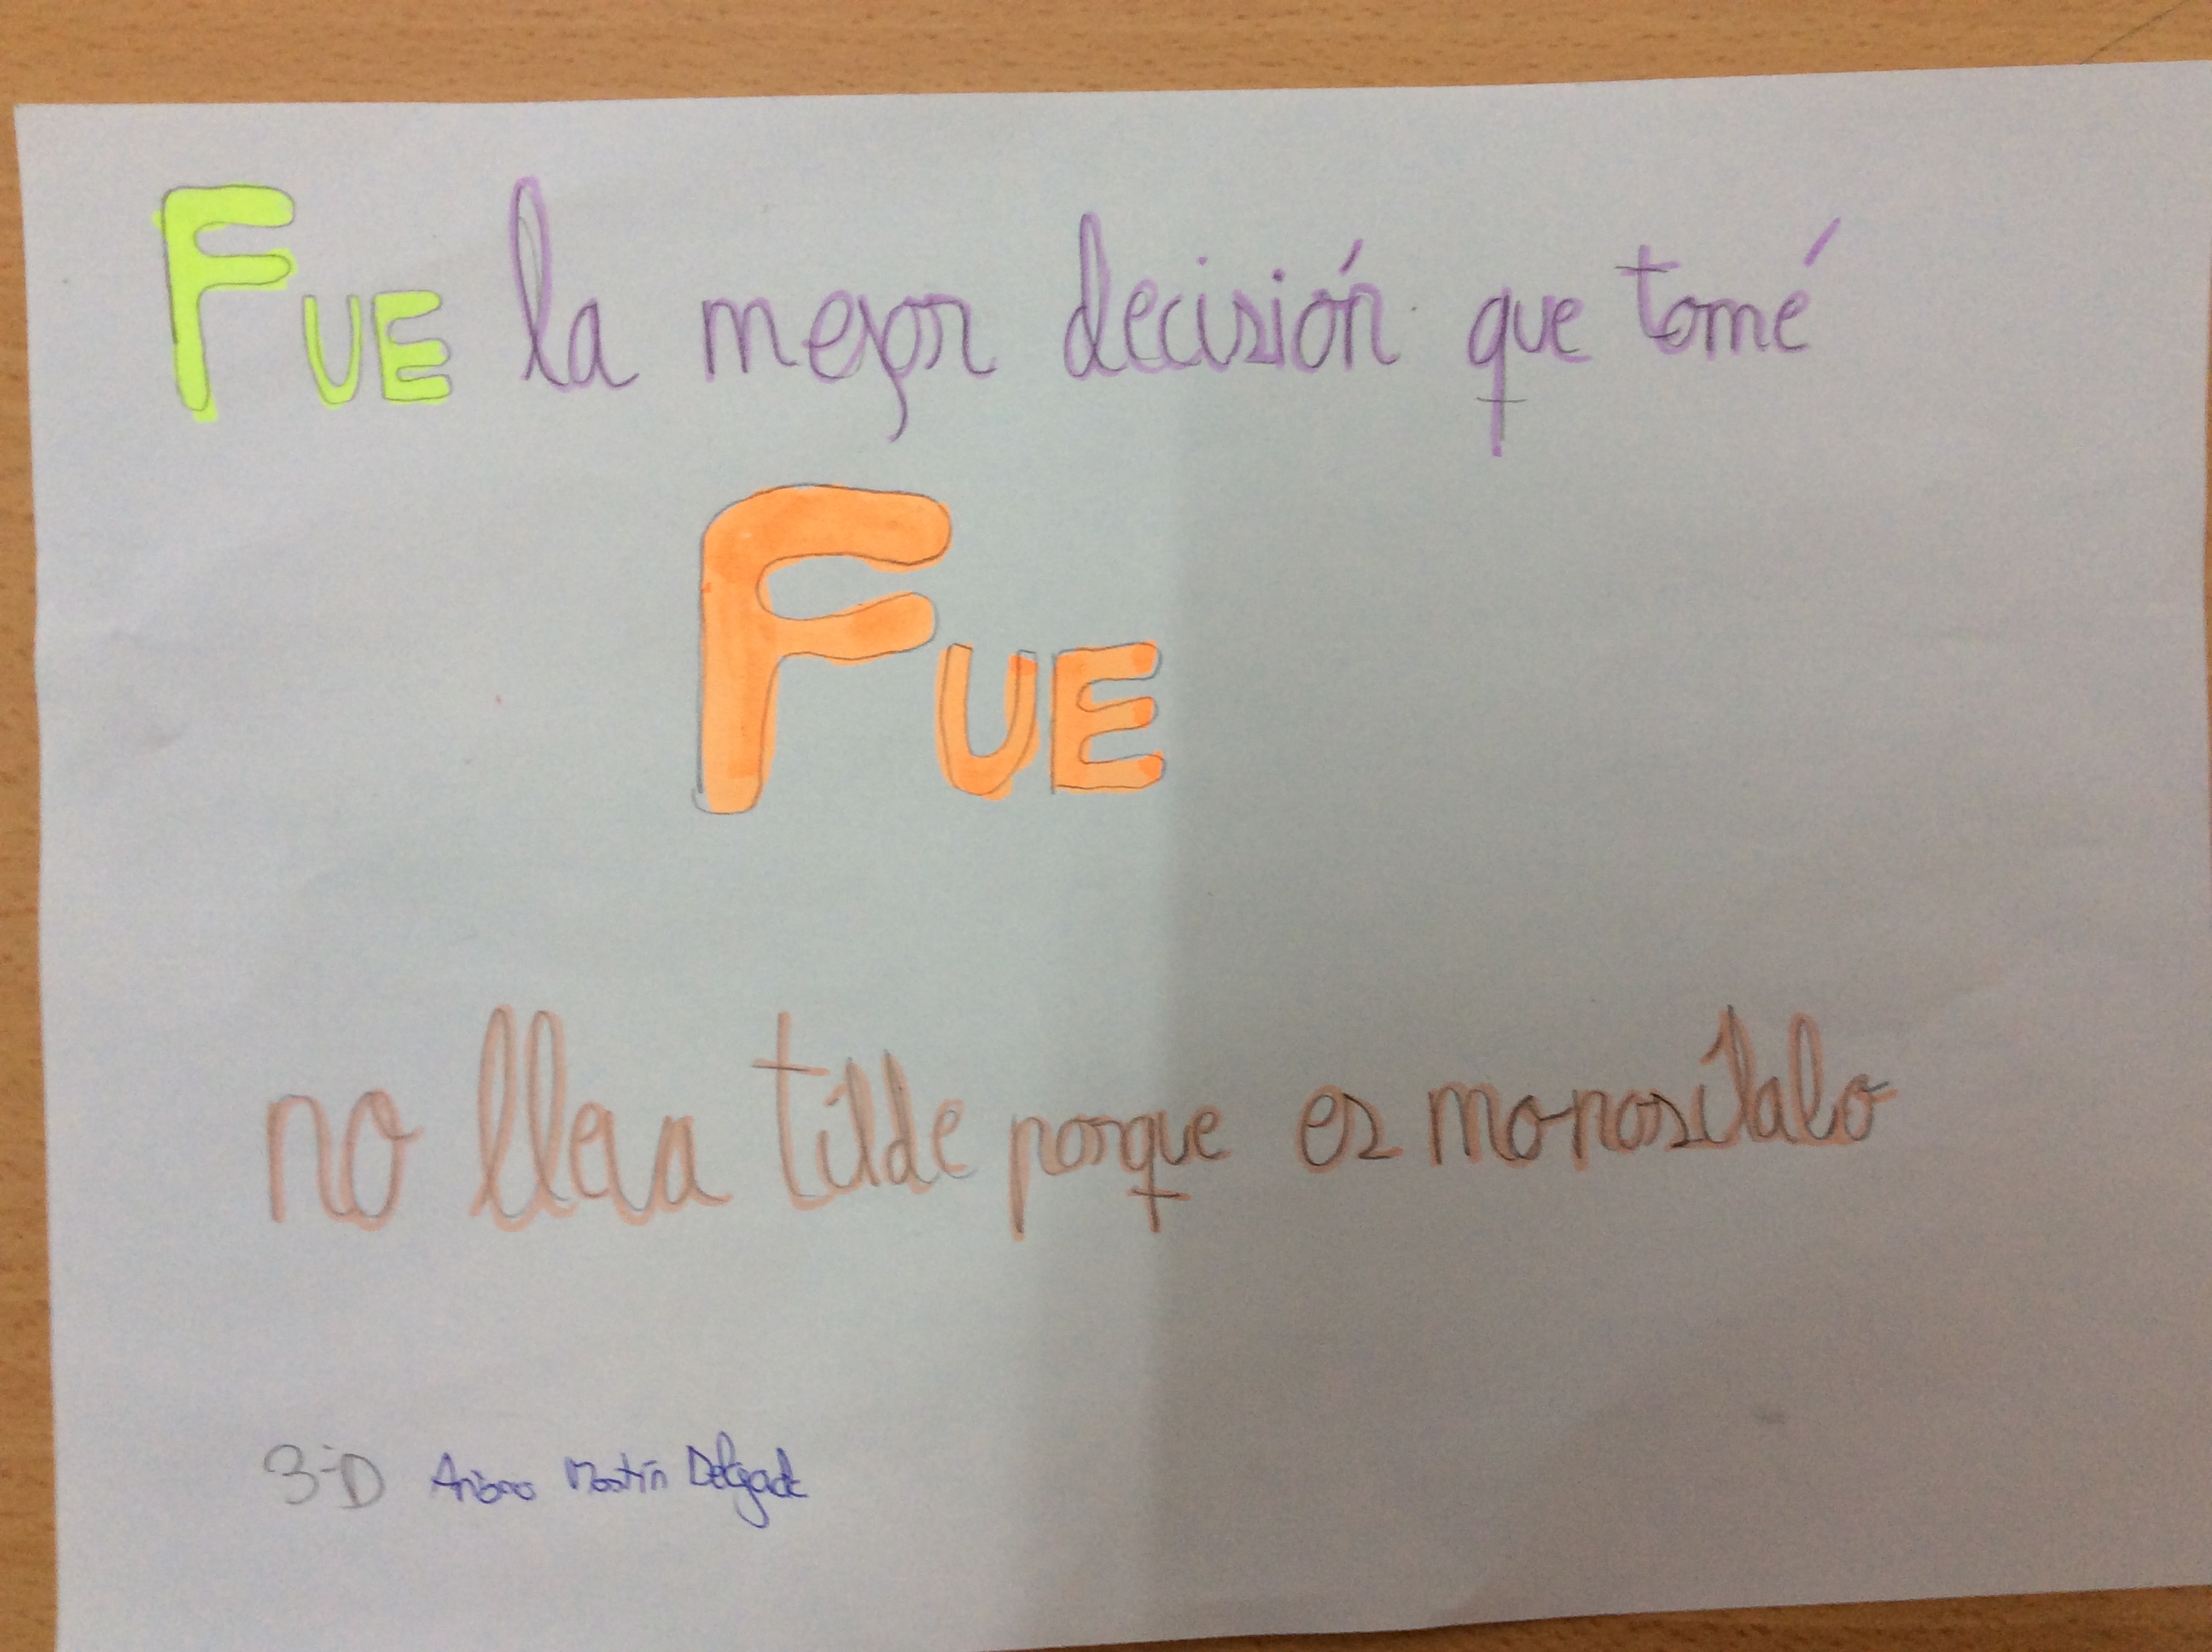 FUE la mejor decisión que tomé
FUE
no lleva tilde porque es monosílabo
3-D Ariana Martín Delgado